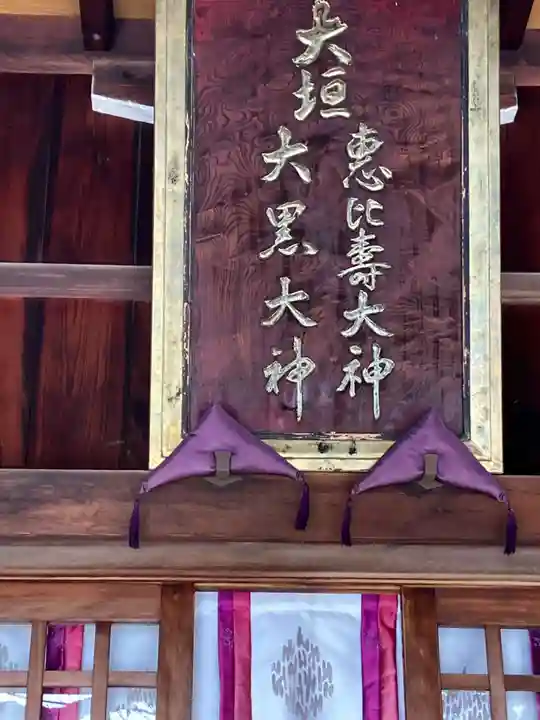 大垣
恵比壽大神
大黒大神